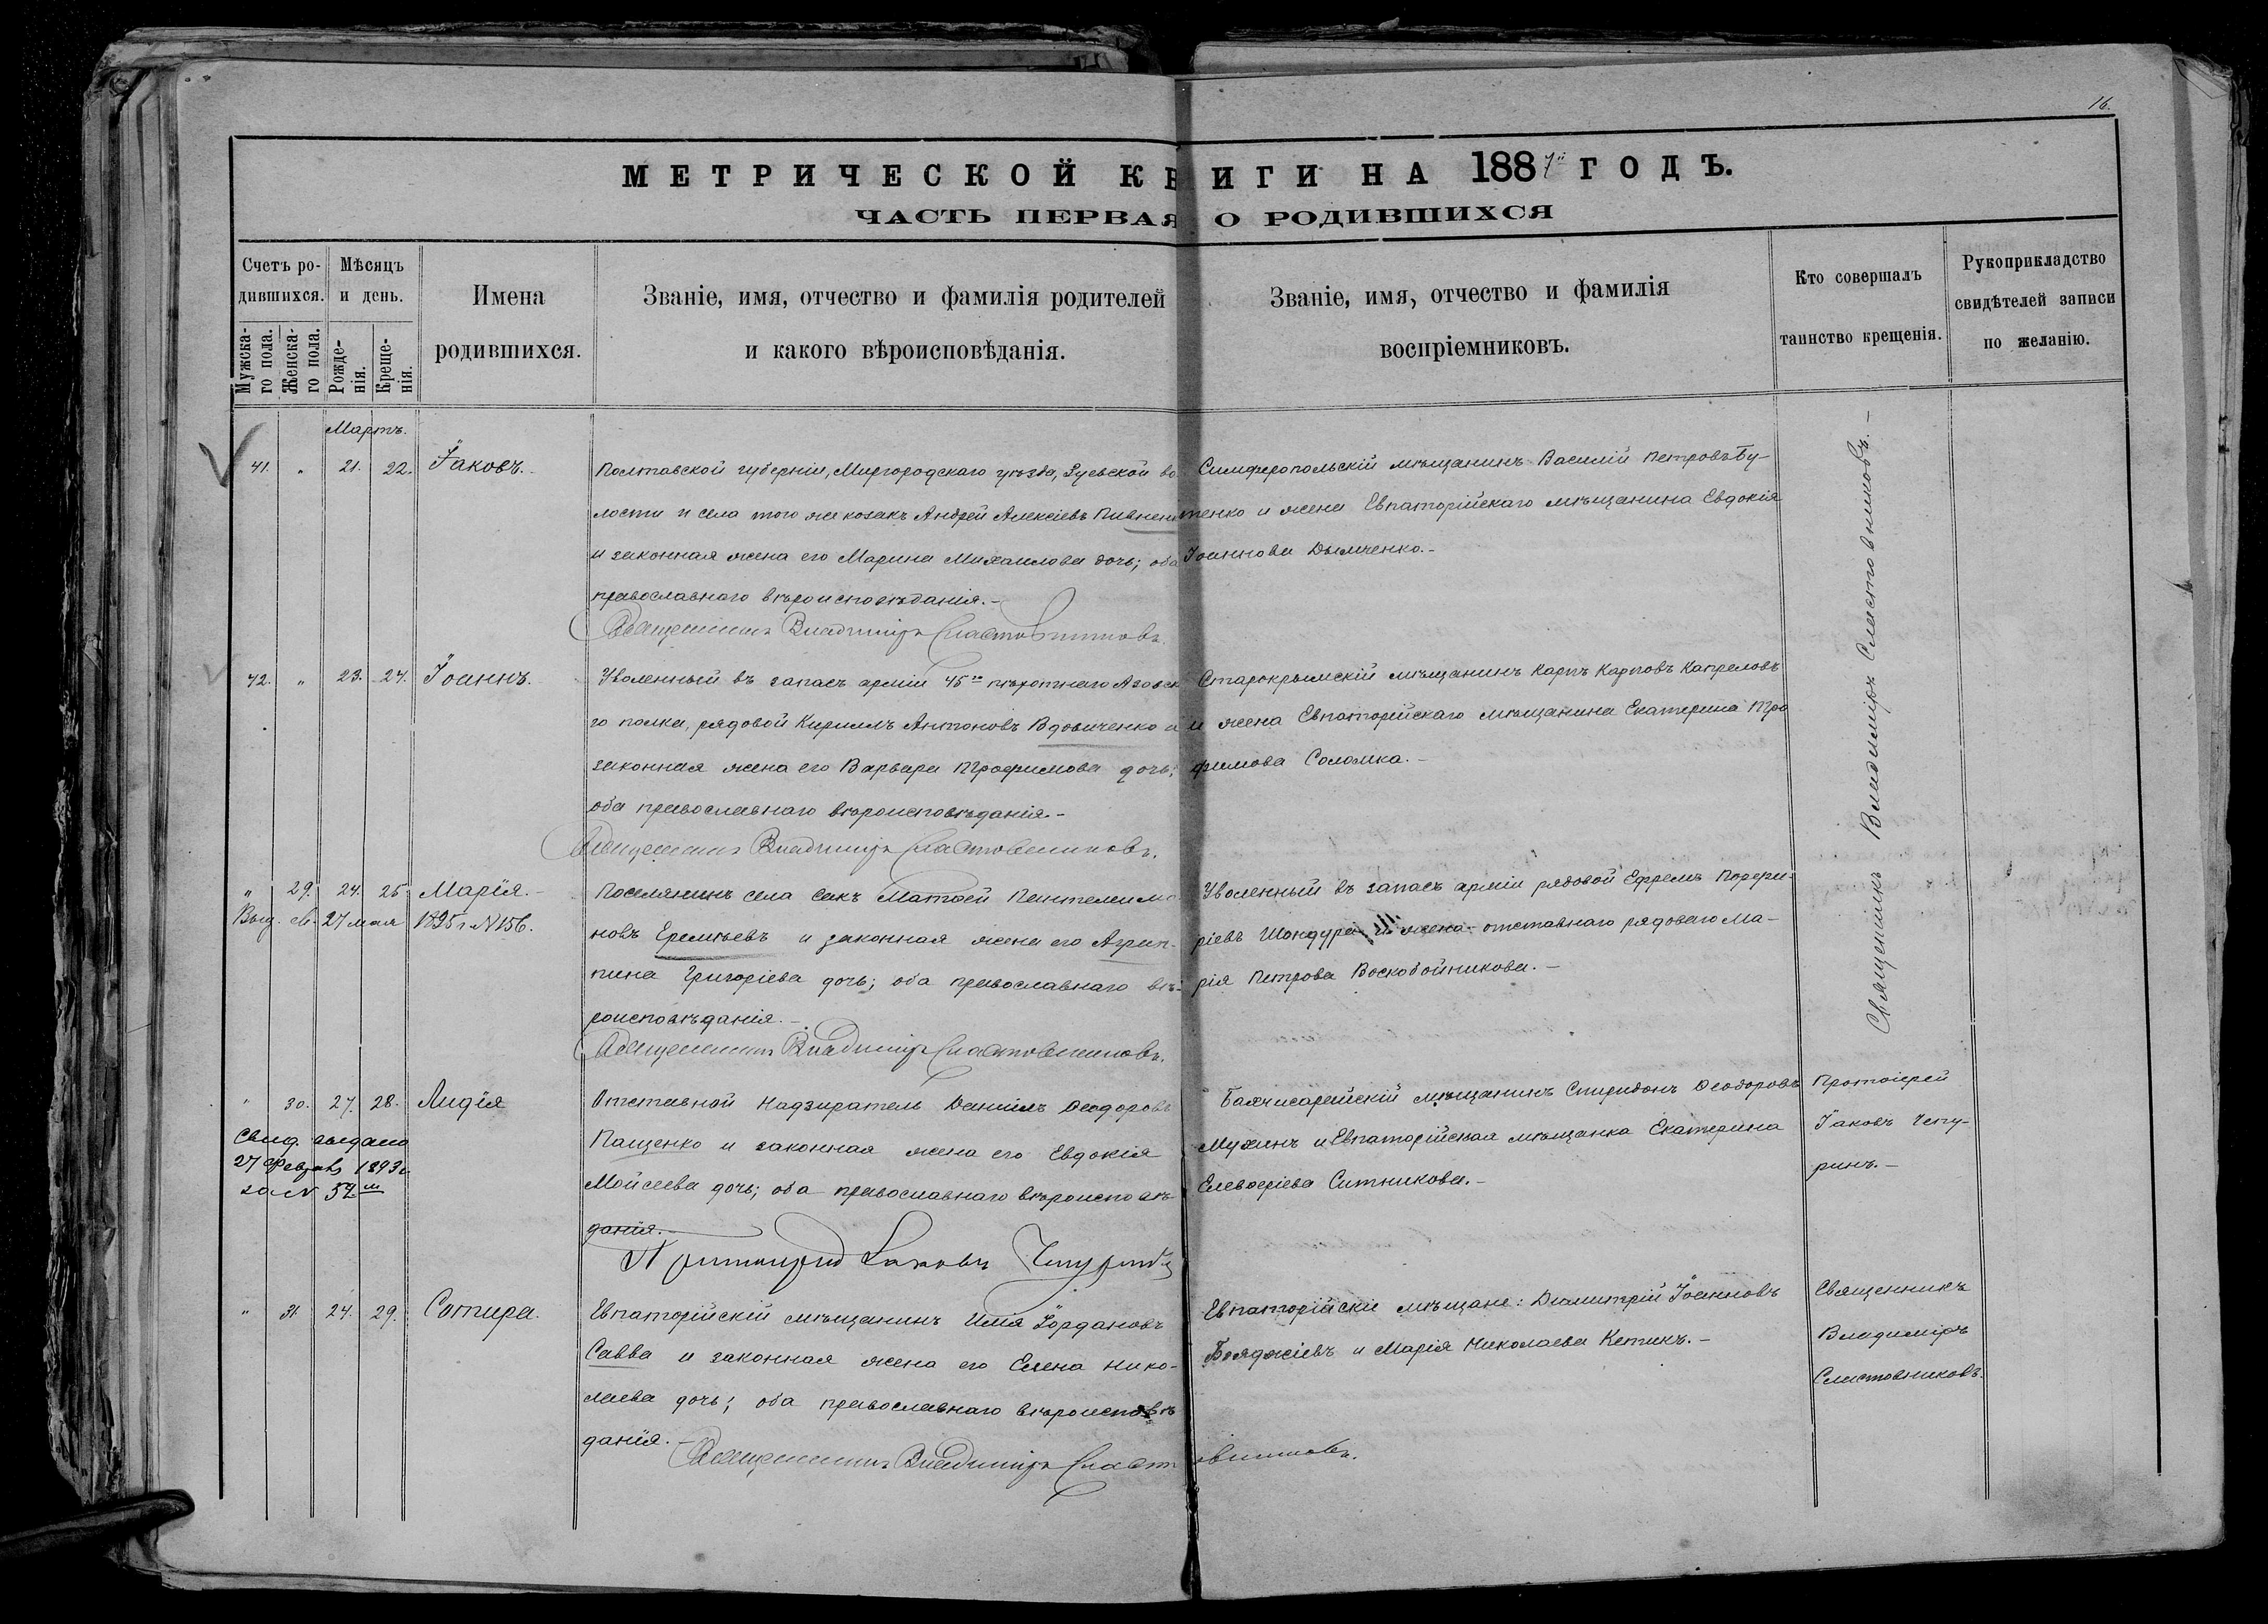 16.
МЕТРИЧЕСКОЙ КНИГИ НА 1887й ГОДЪ.
ЧАСТЬ ПЕРВАЯ О РОДИВШИХСЯ
Счетъ ро-
дившихся.
Мужска-
го пола.
Женска-
го пола.
Мѣсяцъ
и день.
Рожде-
нія.
Креще-
нія.
Имена
родившихся.
Званіе, имя, отчество и фамилія родителей
и какого вѣроисповѣданія.
Званіе, имя, отчество и фамилія
воспріемниковъ.
Кто совершалъ
таинство крещенія.
Рукоприкладство
свидѣтелей записи
по желанію.
Мартъ.
41. " 21. 22. Іаковъ.
Полтавской губерніи, Миргородскаго уѣзда, во
лости и села того же козакъ Андрей Алексіевъ
и законная жена его Марина Михаилова дочь; оба
православнаго вѣроисповѣданія.-
Священникъ Владиміръ Сластовниковъ.
Симферопольскій мѣщанинъ Василій Петровъ Бу-
тенко и жена Евпаторійскаго мѣщанина Евдокія
Іоаннова Дымченко.-
Священникъ Владиміръ Сластовниковъ.-
42. " 23. 24. Іоаннъ.
Уволенный въ запасъ арміи 45го пѣхотнаго Азовск
го полка, рядовой Кириллъ Антоновъ Вдовиченко и
законная жена его Варвара Трофимова дочь;
оба православнаго вѣроисповѣданія.-
Священникъ Владиміръ Сластовниковъ.
Старокрымскій мѣщанинъ Карпъ Карповъ Капреловъ
и жена Евпаторійскаго мѣщанина Екатерина Тро
фимова Соломка.-
" 29. 24. 25. Марія.-
Выд. св. 27 мая 1895 г. N 156.
Поселянинъ села Сакъ Матѳей Пантелеимо
новъ Еремѣевъ и законная жена его Агрип-
пина Григоріева дочь; оба православнаго вѣ-
роисповѣданія.-
Священникъ Владиміръ Сластовниковъ.
Уволенный въ запасъ арміи рядовой Ефремъ Порфи-
ріевъ Шандура и жена отставнаго рядоваго Ма-
рія Петрова Воскобойникова.-
" 30. 27. 28. Лидія
Свид. выдано
27 Февраля 1893 г.
за N 57м
Отставной надзиратель Даніилъ Ѳеодоровъ
Пащенко и законная жена его Евдокія
Мойсеева дочь; оба православнаго вѣроисповѣ
данія.-
Протоіерей Іаковъ Чепуринъ
Бахчисарайскій мѣщанинъ Спиридонъ Ѳеодоровъ
Мухинъ и Евпаторійская мѣщанка Екатерина
Елевѳеріева Ситникова.-
Протоіерей
Іаковъ Чепу-
ринъ.-
" 31 24. 29. Сотира.
Евпаторійскій мѣщанинъ Илія Іордановъ
Савва и законная жена его Елена Нико-
лаева дочь; оба православнаго вѣроисповѣ
данія.-
Священникъ Владиміръ Сластовниковъ.
Евпаторійскіе мѣщане: Димитрій Іоанновъ
Бояджіевъ и Марія Николаева Кетикъ.-
Священникъ
Владиміръ
Сластовниковъ.